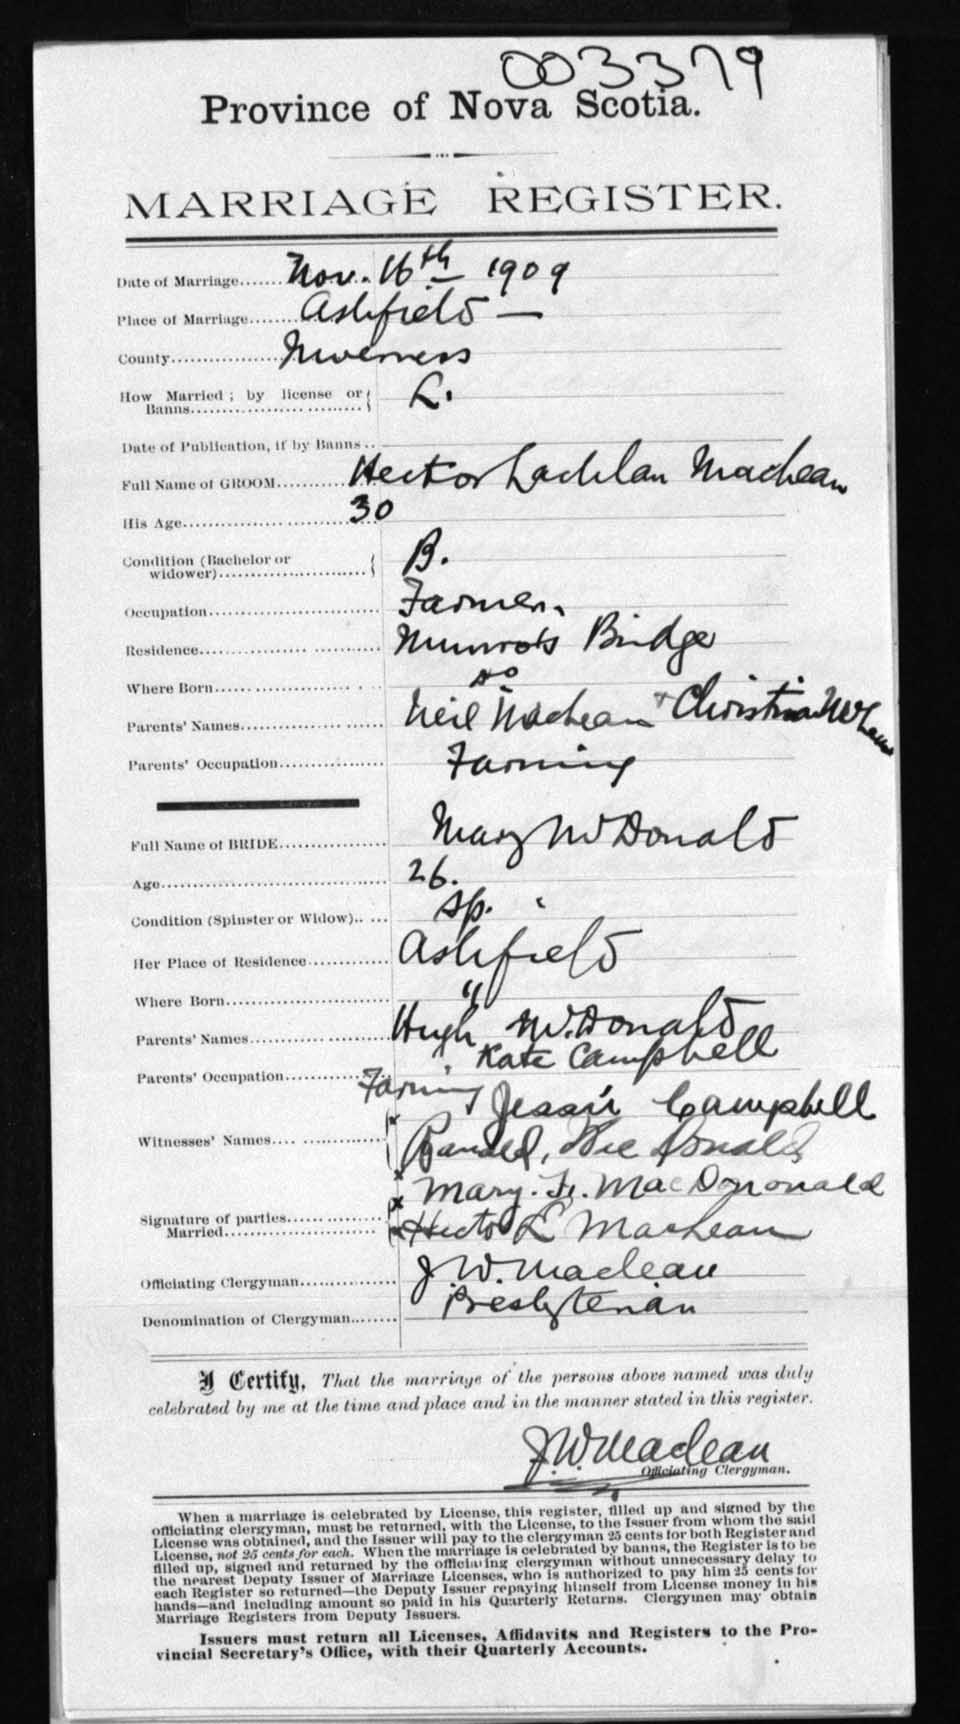 003379
Province of Nova Scotia.
MARRIAGE REGISTER.
Date of Marriage....... Nov. 16th 1909
Place of Marriage........ Ashfield —
County................ Inverness
How Married; by license or
Banns........................ L.
Date of Publication, if by Banns ..
Full Name of GROOM.......... Hector Lachlan MacLean
His Age........................ 30
Condition (Bachelor or
widower)........................ B.
Occupation............................ Farmer.
Residence............................ Munroes Bridge
Where Born........................ do
Parents' Names....................... Neil MacLean + Christina
Parents' Occupation................. Farming
Full Name of BRIDE................. Mary McDonald
Age.................................... 26.
Condition (Spinster or Widow)...... Sp.
Her Place of Residence............. Ashfield
Where Born.......................... "
Parents' Names...................... Hugh McDonald
Kate Campbell
Parents' Occupation............... Farming
Jessie Campbell
Witnesses' Names.... ............... Mc Donald
x Mary. MacDonald
Signature of parties...............
Married....................... x Hector L MacLean
Officiating Clergyman.............. J.W. Maclean
Denomination of Clergyman....... Presbyterian
I Certify, That the marriage of the persons above named was duly
celebrated by me at the time and place and in the manner stated in this register.
J.W. Maclean
Officiating Clergyman.
When a marriage is celebrated by License, this register, filled up and signed by the
officiating clergyman, must be returned, with the License, to the Issuer from whom the said
License was obtained, and the Issuer will pay to the clergyman 25 cents for both Register and
License, not 25 cents for each. When the marriage is celebrated by banns, the Register is to be
filled up, signed and returned by the officiating clergyman without unnecessary delay to
the nearest Deputy Issuer of Marriage Licenses, who is authorized to pay him 25 cents for
each Register so returned—the Deputy Issuer repaying himself from License money in his
hands—and including amount so paid in his Quarterly Returns. Clergymen may obtain
Marriage Registers from Deputy Issuers.
Issuers must return all Licenses, Affidavits and Registers to the Pro-
vincial Secretary's Office, with their Quarterly Accounts.